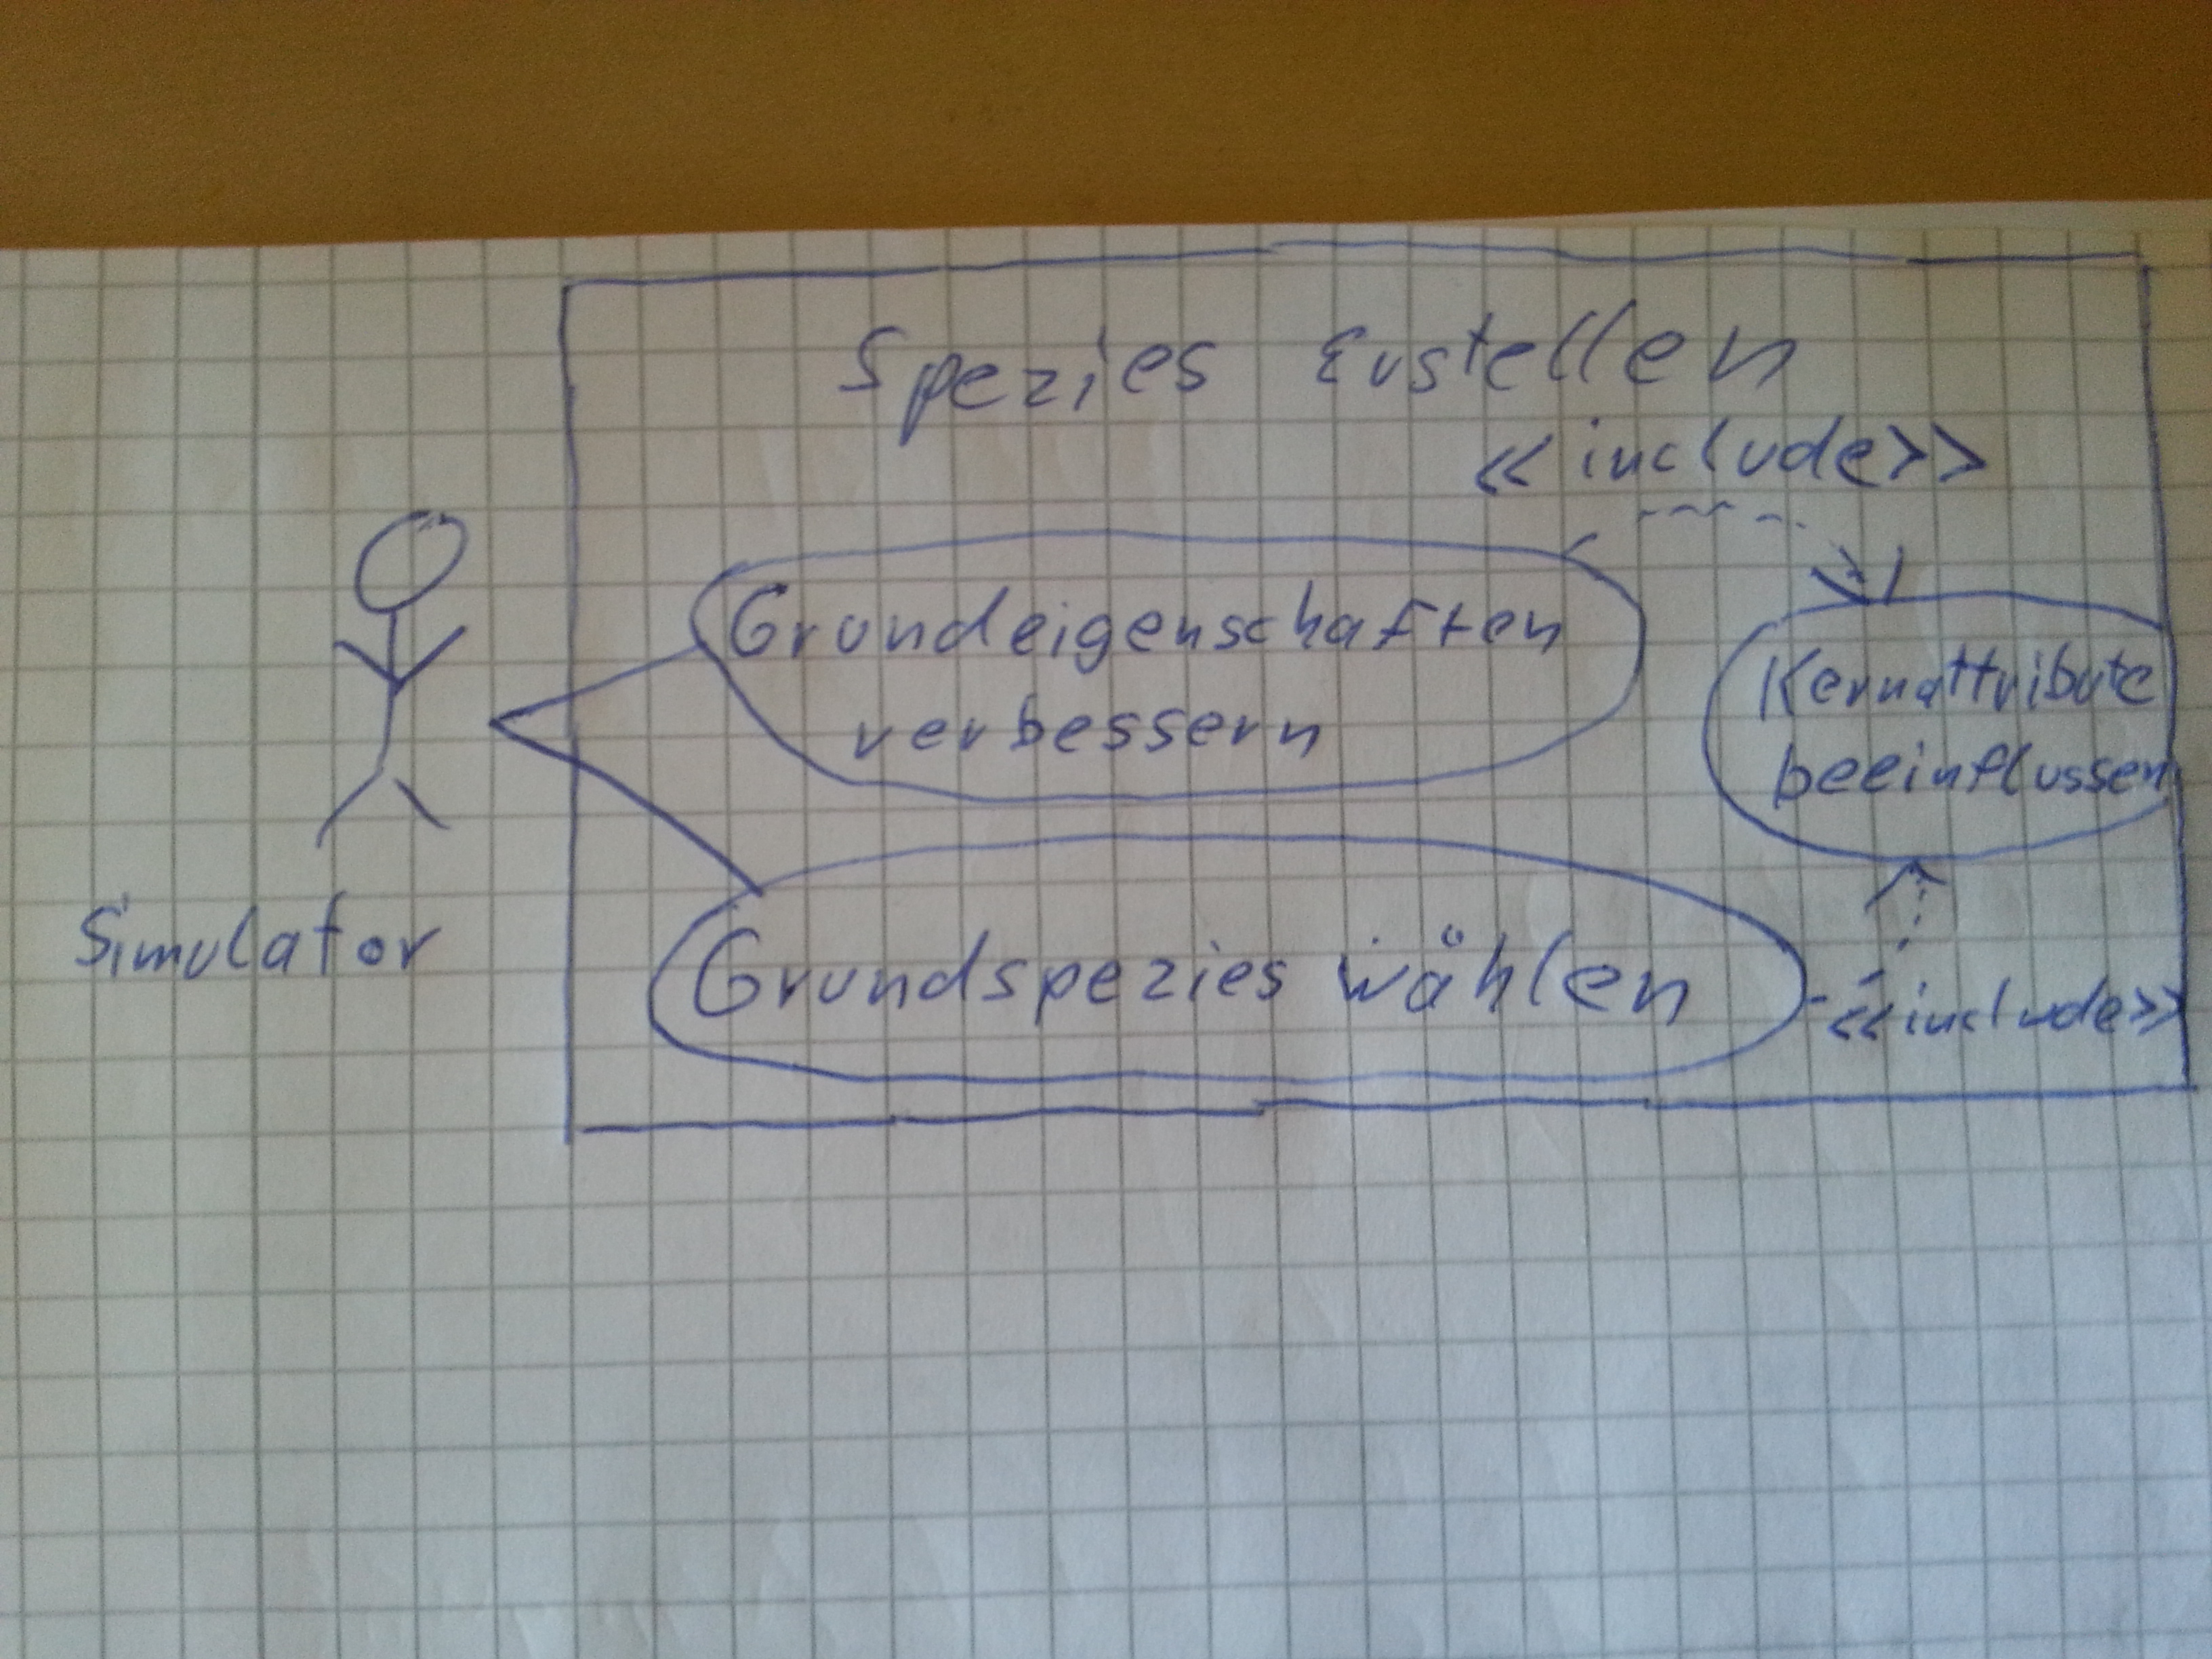 Spezies Erstellen
<<include>>
Grundeigenschaften
verbessern
Kernattribute
beeinflussen
Simulator
Grundspezies wählen
<<include>>